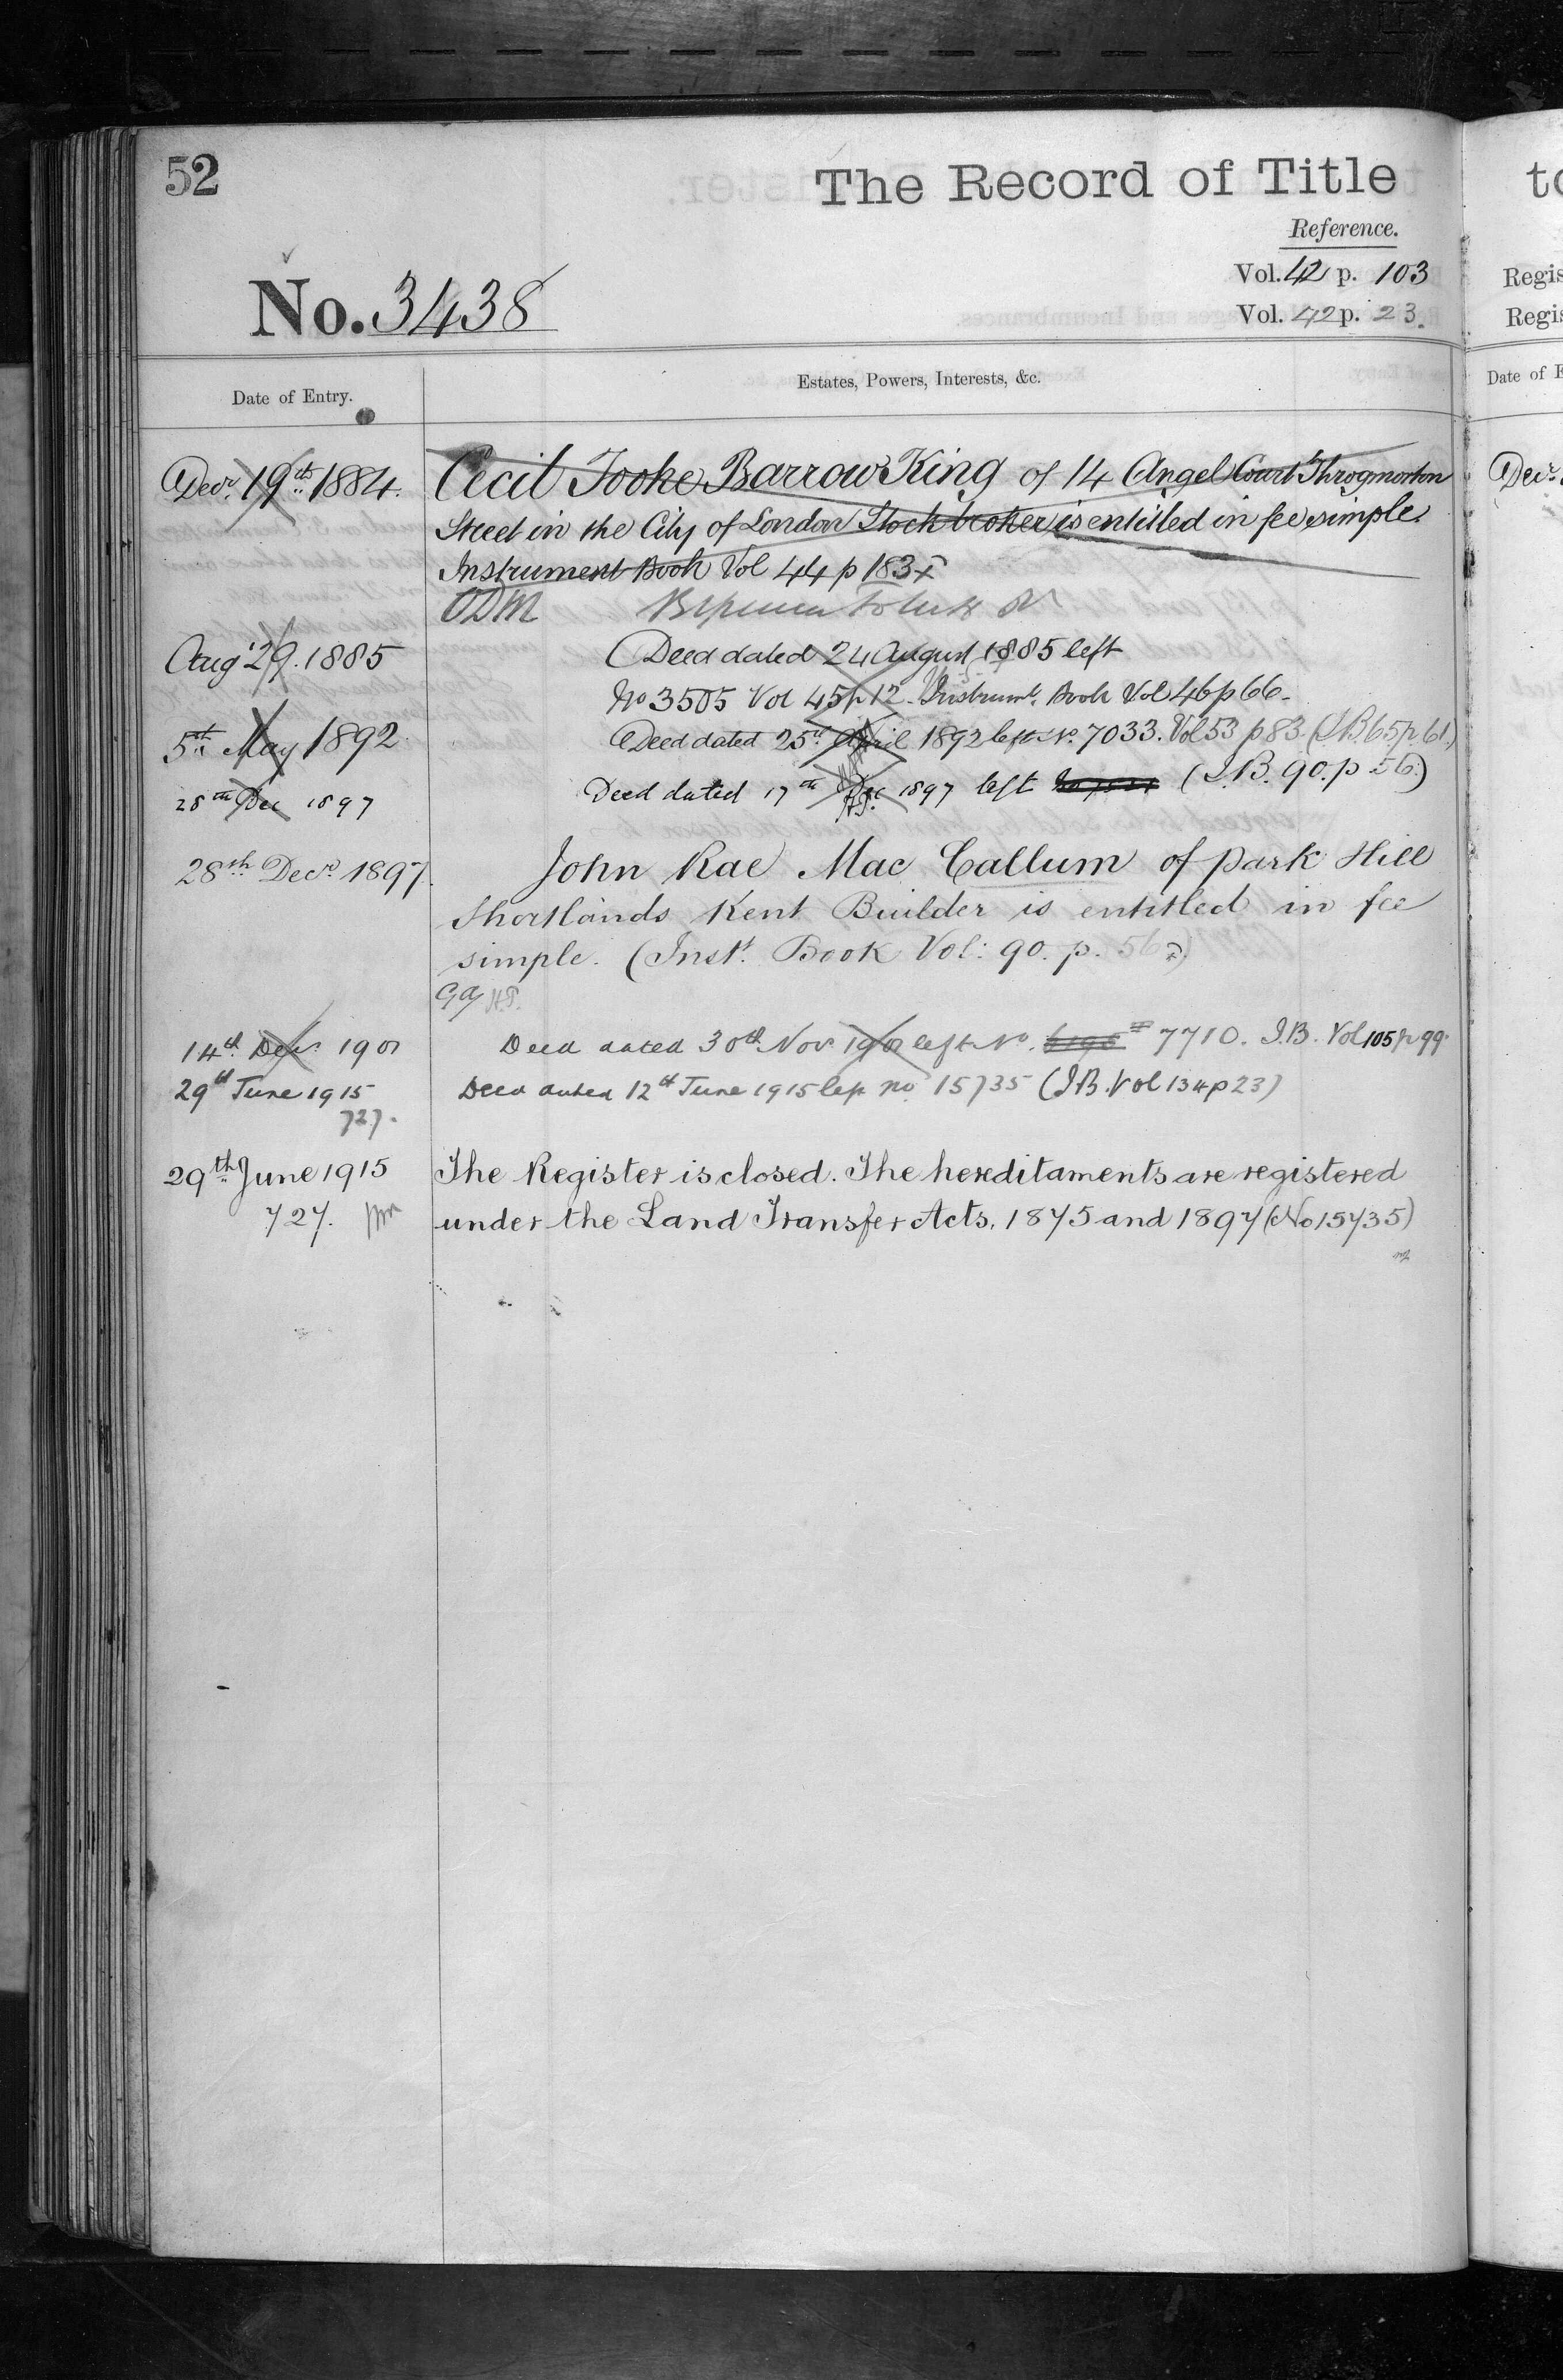 52
The Record of Title
Reference.
Vol. 42 p. 103
Vol. 42 p. 23.
No. 3438
Date of Entry.
Estates, Powers, Interests, &c.
Decr. 19th 1884. Cecil Tooke Barrow King of 14 Angel Court Throgmorton
Street in the City of London Stock broker is entitled in fee simple.
Instrument Book Vol 44 p 183
ODM
Augt 29. 1885 Deed dated 24 August 1885 left
No 3505 Vol 45 p 12. Instrumt. Book Vol 46 p 66.
5th May 1892 Deed dated 25th April 1892 left No. 7033. Vol 53 p 83. (I.B. 65 p. 61.)
28th Dec 1897 Deed dated 17th Dec 1897 left (I.B. 90. p 56.)
28th Decr. 1897. John Rae Mac Callum of Park Hill
Shortlands Kent Builder is entitled in fee
simple. (Instt. Book Vol: 90. p. 56)
14th Decr. 1901 Deed dated 30th Novr. 1901 left No. 7710. I.B. Vol 105 p 99.
29th June 1915 Deed dated 12th June 1915 left no 15735 (I.B. Vol 134 p 23)
727.
29th June 1915 The Register is closed. The hereditaments are registered
727. under the Land Transfer Acts, 1875 and 1897 (No 15735)
to
Regis
Regis
Date of E
Decr.